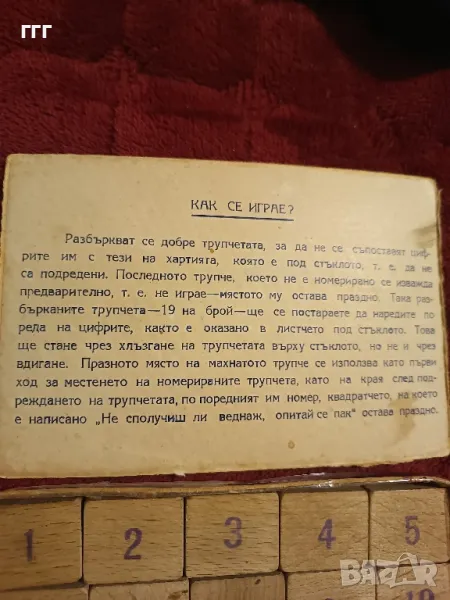 ггг
КАК СЕ ИГРАЕ?
Разбъркват се добре трупчетата, за да не се съпоставят циф-
рите им с тези на хартията, която е под стъклото, т. е. да не
са подредени. Последното трупче, което не е номерирано се изважда
предварително, т. е. не играе—мястото му остава праздно. Така раз-
бърканите трупчета—19 на брой—ще се постараете да наредите по
реда на цифрите, както е оказано в листчето под стъклото. Това
ще стане чрез хлъзгане на трупчетата върху стъклото, но не и чрез
вдигане. Празното място на махнатото трупче се използва като първи
ход за местенето на номерираните трупчета, като на края след под-
реждането на трупчетата, по поредният им номер, квадратчето, на което
е написано „Не сполучиш ли веднаж, опитай се пак" остава праздно.
1 2 3 4 5
10
BAZAR.BG